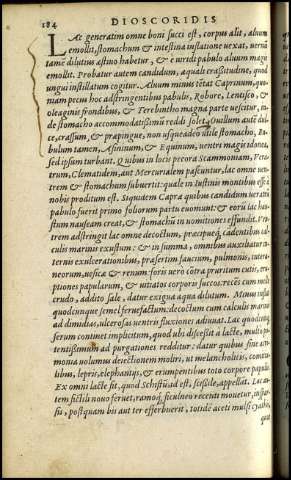 184 DIOSCORIDIS
LAc generatim omne boni succi est, corpus alit, aluum
emollit, stomachum & intestina inflatione uexat, uerū
tamē dilutius æstiuo habetur, & e uiridi pabulo aluum magis
emollit. Probatur autem candidum, æquali crassitudine, quod
ungui instillatum cogitur. Aluum minus tētat Caprinum, quo-
niam pecus hoc adstringentibus pabulis, Robore, Lentisco, &
oleaginis frondibus, & Terebintho magna parte uescitur, in-
de stomacho accommodatissimū reddi solet. Ouillum autē dul-
ce, crassum, & præpingue, non usqueadeo utile stomacho, Bu-
bulum tamen, Asininum, & Equinum, uentri magis idoneū,
sed ipsum turbant. Quibus in locis pecora Scammoniam, Vera-
trum, Clematidem, aut Mercurialem pascuntur, lac omne uen-
trem & stomachum subuertit: quale in Iustinis montibus esse à
nobis proditum est. Siquidem Capræ quibus candidum ueratri
pabulo fuerit primo foliorum partu euomunt: & eorū lac hau-
stum nauseam creat, & stomachū in uomitiones effundit. Ven-
trem adstringit lac omne decoctum, præsertim cadentibus cal-
culis marinis exustum: & in summa, omnibus auxiliatur in-
ternis exulcerationibus, præsertim faucium, pulmonis, intesti-
neorum, uesicæ & renum: foris uero cōtra pruritum cutis, eru-
ptiones papularum, & uitiatos corporis succos: recēs cum melle
crudo, addito sale, datur exigua aqua dilutum. Minus inflat
quodcunque semel feruefactum: decoctum cum calculis marinis
ad dimidias, ulcerosas uentris fluxiones adiuuat. Lac quoddā
serum continet implicitum, quod ubi discessit à lacte, multo po-
tentissimum ad purgationes redditur: datur quibus sine acri-
monia uolumus deiectionem moliri, ut melancholicis, comitia-
libus, lepris, elephantijs, & erumpentibus toto corpore papulis.
Ex omni lacte fit, quod Schistū ad est, scissile, appellat. Lac au-
tem fictili nouo feruet, ramoq; ficulneo recenti mouetur, insper-
sis, postquam bis aut ter efferbuerit, totidē aceti mulsi cyathis,
qua